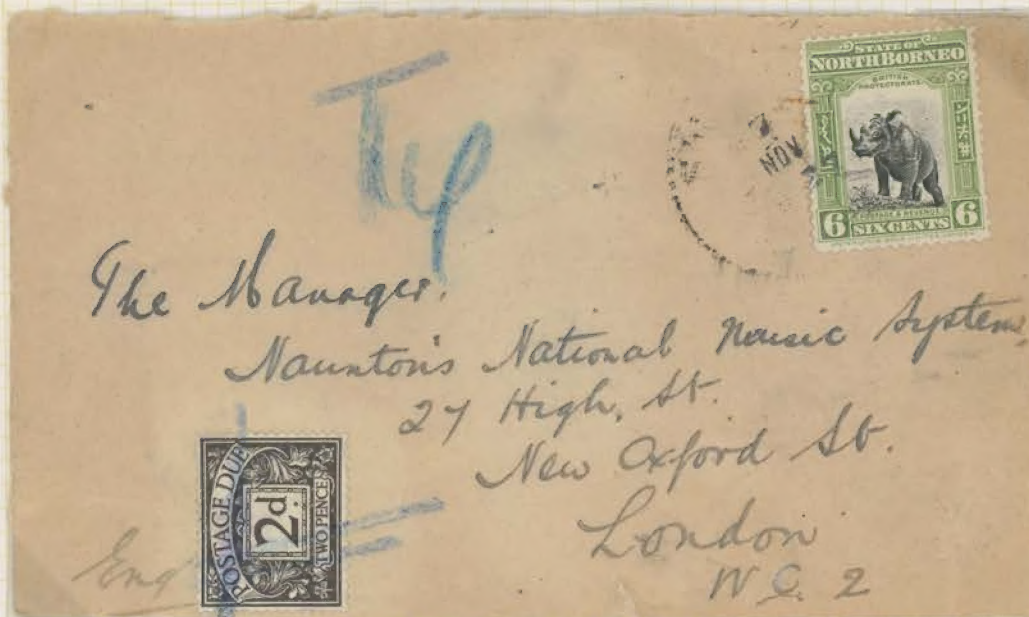 STATE OF
NORTH BORNEO
BRITISH
PROTECTORATE
POSTAGE & REVENUE
6 SIX CENTS 6
NOV
The Manager.
Naunton's National Music System
27 High, St.
New Oxford St.
London
W.C. 2
Eng
POSTAGE DUE
2d.
TWO PENCE